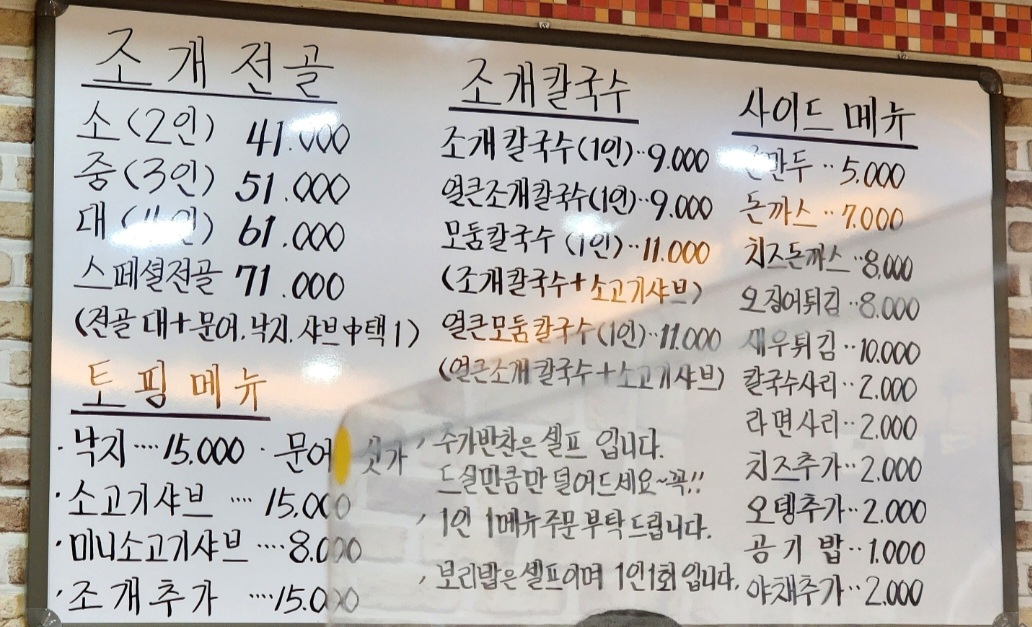 조개전골
소(2인) 41.000
중(3인) 51.000
대 (4인) 61.000
스페셜전골 71.000
(전골 대+문어.낙지.샤브中택1)
토핑메뉴
·낙지····15.000 ·문어 싯가
·소고기샤브 ···· 15.000
·미니소고기샤브 ····8.000
·조개추가 ····15.000
조개칼국수
조개칼국수(1인)··9.000
얼큰조개칼국수(1인)··9.000
모둠칼국수 (1인)··11.000
(조개칼국수+소고기샤브)
얼큰모둠칼국수(1인)··11.000
(얼큰조개칼국수+소고기샤브)
, 추가반찬은 셀프 입니다.
드실만큼만 덜어드세요~꼭!!
, 1인 1메뉴주문 부탁드립니다.
, 보리밥은 셀프이며 1인1회 입니다.
사이드 메뉴
만두··5.000
돈까스··7.000
치즈돈까스··8.000
오징어튀김··8.000
새우튀김··10.000
칼국수사리··2.000
라면사리··2.000
치즈추가··2.000
오뎅추가··2.000
공기밥··1.000
야채추가··2.000